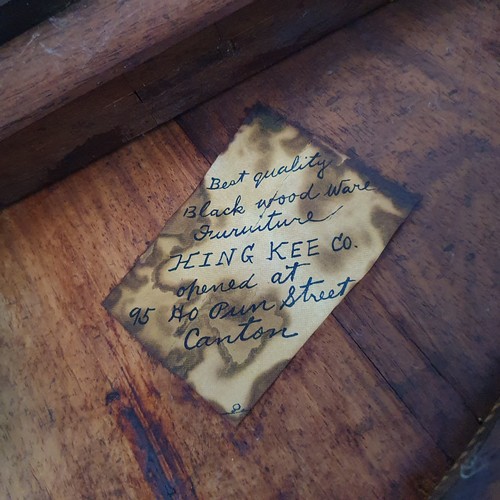 Best quality
Black wood Ware
Furuiture
HING KEE Co.
opened at
95 Ho Pun Street
Canton